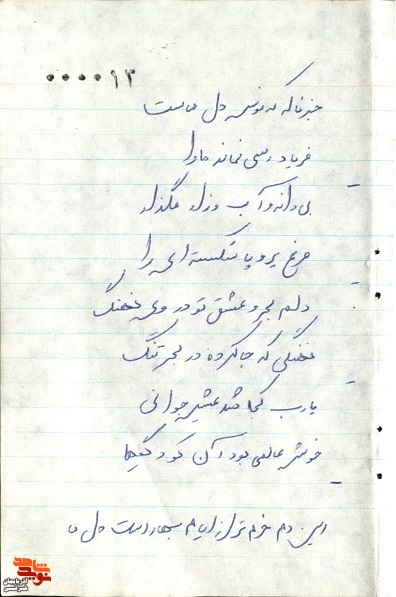 ۰۰۰۰۱۲
جز ناله که مونس دل ماست
فریاد رسی نماند ما را
بی دانه و آب و زار مگذار
مرغ پر و پا شکسته ای را
دلم بحر و عشق تو در وی نهنگ
نهنگی که جا کرده در بحر تنگ
یارب کجا شد عیش جوانی
خوش عالمی بود آن کودکیها
این دم خرم تر از ایام بهار است دل ما
شاهد
نوید